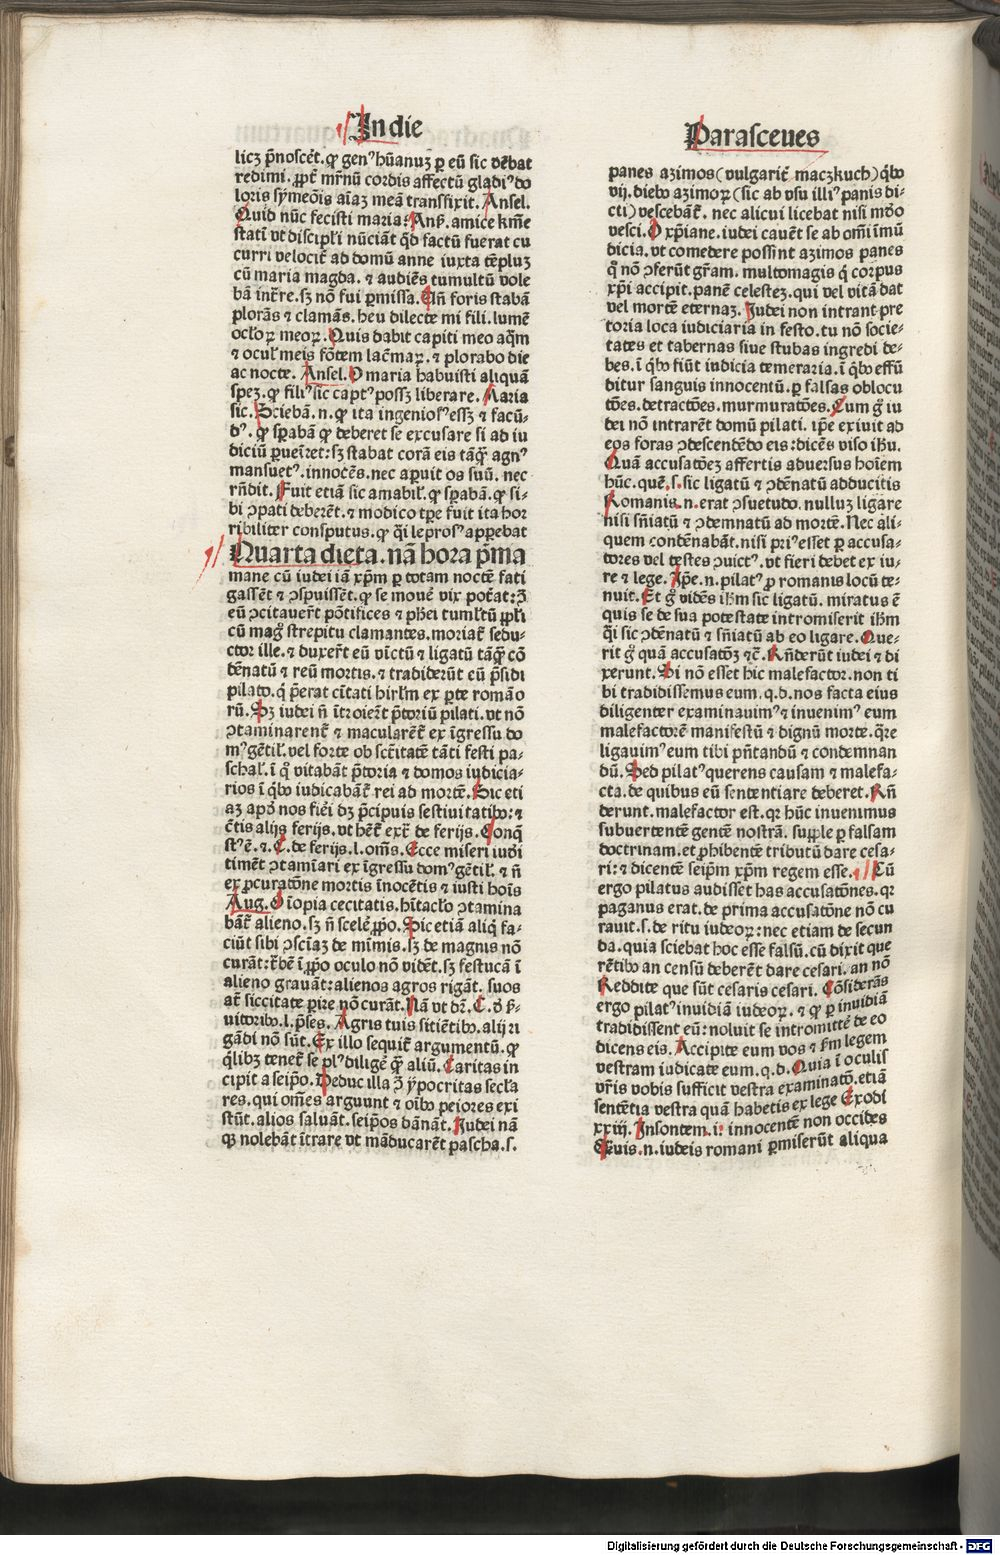 In die
licꝫ p̄noscēt. qꝫ genꝰ hūanuꝫ ꝑ eū sic debat
redimi. ꝓpt̄ mr̄nū cordis affectū gladiꝰ do
loris sy̆meōis aīaꝫ meā transfixit. Ansel.
Quid nūc fecisti maria? Anẜ. amice km̄e
statī vt discipl̄i nūciāt qd̄ factū fuerat cu
curri velocit̄ ad domū anne iuxta tēpluꝫ
cū maria magda. ⁊ audiēs tumultū vole
bā int̄re. sꝫ nō fui ꝑmissa. Un̄ foris stabā
plorās ⁊ clamās. heu dilecte mi fili. lumē
ocloꝝ meoꝝ. Quis dabit capiti meo aq̄m
⁊ oculꝭ meis fōtem lacrimaꝝ. ⁊ plorabo die
ac nocte. Ansel. O maria habuisti aliquā
speꝫ. qꝫ filiꝰ sic captꝰ possꝫ liberare. Maria
sic. Sciebā. n. qꝫ ita ingeniosꝰ essꝫ ⁊ facū-
dꝰ. qꝫ sꝑabā qꝫ deberet se excusare si ad iu
diciū ꝑueīret: sꝫ stabat corā eis tāqꝫ agnꝰ
mansuetꝰ. innocēs. nec aꝑuit os suū. nec
rn̄dit. Fuit etiā sic amabilꝭ. qꝫ sꝑabā. qꝫ si-
bi ꝯpati deberēt. ⁊ modico tp̄e fuit ita hor
ribiliter consputus. qꝫ q̄i leprosꝰ apꝑebat
Quarta dieta. nā hora p̄ma
mane cū iudei iā xp̄m ꝑ totam noctē fati
gassēt ⁊ ꝯspuissēt. qꝫ se mouē vix pot̄at: ꝫ
eū ꝯcitauēt pōtifices ⁊ pħei tumltū ꝓpl̄i
cū mag° strepitu clamantes. moriat̄ sedu-
ctor ille. ⁊ duxer̄t eū vīctū ⁊ ligatū tāqꝫ cō
dēnatū ⁊ reū mortis. ⁊ tradiderūt eū p̄sidi
pilato. q̄ p̄erat cītati hirlm̄ ex ꝑte romāo
rū. Sꝫ iudei n̄ ītroierēt p̄toriū pilati. vt nō
ꝯtaminarent̄ ⁊ macularēt̄ ex īgressu do
mꝰ gētilꝭ. vel forte ob sc̄titatē tāti festi pa-
schalꝭ. ī qͦ vitabāt p̄toria ⁊ domos iudicia-
rios ī qͥbꝰ iudicabāt̄ rei ad mortē. Sic eti
aꝫ apd̄ nos fiēi dꝫ p̄cipuis festiuitatibꝰ: ⁊
c̄tis alijs ferijs. vt hēt̄ ext̄ de ferijs. Conq̄
stꝰ ē. ⁊. C. de ferijs. l. oīns. Ecce miseri iudi
timēt ꝯtamīari ex īgressu domꝰ gētilꝭ. ⁊ n̄
ex ꝓcuratōne mortis īnocētis ⁊ iusti hoīs
Aug. O īopia cecitatis. hītaclo ꝯtamina
bāt̄ alieno. sꝫ n̄ scelē ꝓpo. Sic etiā aliqͥ fa-
ciūt sibi ꝯscīaꝫ de mīmis. sꝫ de magnis nō
curāt: tͣbē ī ꝓpo oculo nō vidēt. sꝫ festucā ī
alieno grauāt: alienos agros rigāt. suos
at̄ siccitate ꝑire nō curāt. Nā vt dr̄. C. d̄ ẜ-
uitoribꝰ. l. p̄ses. Agris tuis sitiētibꝰ. alij ri
gādi nō sūt. Ex illo sequit̄ argumentū. qꝫ
qͥlibꝫ tenet̄ se plꝰ diligē qꝫ aliū. Caritas in
cipit a seip̄o. Deduc illa ꝫ ypocritas secla
res. qui om̄es arguunt ⁊ oībꝰ peiores exi
stūt. alios saluāt. seip̄os dānāt. Iudei nā
qꝫ nolebāt ītrare vt māducarēt pascha. s.
Parasceues
panes azimos (vulgarit̄ maczkuch) qͥbꝰ
vij. diebꝰ azimoꝝ (sic ab vsu illiꝰ panis di-
cti) vescebāt̄. nec alicui licebat nisi mūdo
vesci. O xp̄iane. iudei cauēt se ab om̄i īmū
dicia. vt comedere possint azimos panes
qͥ nō ꝯferūt gr̄am. multomagis qͥ corpus
xp̄i accipit. panē celesteꝫ. qui vel vitā dat
vel mortē eternaꝫ. Iudei non intrant pre
toria loca iudiciaria in festo. tu nō socie-
tates et tabernas siue stubas ingredi de-
bes. ī qͥbꝰ fiūt iudicia temeraria. ī qͥbꝰ effū
ditur sanguis innocentū. ꝑ falsas oblocu
tōes. detractōes. murmuratōes. Cum gͦ iu
dei nō intrarēt domū pilati. ip̄e exiuit ad
eos foras ꝯdescendēdo eis: dicēs viso iħu.
Quā accusatōeꝫ affertis aduersus hoīem
hūc. quē. s. sic ligatū ⁊ ꝯdēnatū adducitis
Romanis. n. erat ꝯsuetudo. nulluꝫ ligare
nisi sn̄iatū ⁊ ꝯdemnatū ad mortē. Nec ali-
quem condēnabāt. nisi priꝰ esset ꝑ accusa-
tores vel testes ꝯuictꝰ. vt fieri debet ex iu-
re ⁊ lege. Ip̄e. n. pilatꝰ ꝓ romanis locū te-
nuit. Et gͦ vidēs iħm sic ligatū. miratus ē
quis se de sua potestate intromiserit iħm
qͥ sic ꝯdēnatū ⁊ sn̄iatū ab eo ligare. Que-
rit gͦ quā accusatōꝫ ⁊c̄. Rn̄derūt iudei ⁊ di
xerunt. Si nō esset hic malefactor. non ti
bi tradidissemus eum. q. d. nos facta eius
diligenter examinauimꝰ ⁊ inuenimꝰ eum
malefactorē manifestū ⁊ dignū morte. qͣre
ligauimꝰ eum tibi pn̄tandū ⁊ condemnan
dū. Sed pilatꝰ querens causam ⁊ malefa-
cta. de quibus eū sententiare deberet. Rn̄
derunt. malefactor est. qꝛ hūc inuenimus
subuertentē gentē nostrā. supple ꝑ falsam
doctrinam. et ꝓhibentē tributū dare cesa-
ri: ⁊ dicentē seip̄m xp̄m regem esse. Cū
ergo pilatus audisset has accusatōnes. qꝛ
paganus erat. de prima accusatōne nō cu
rauit. s. de ritu iudeoꝝ: nec etiam de secun
da. quia sciebat hoc esse falsū. cū dixit que
rētibꝰ an censū deberēt dare cesari. an nō
Reddite que sūt cesaris cesari. Cōsiderās
ergo pilatꝰ inuidiā iudeoꝝ. ⁊ qꝫ ꝑ inuidiā
tradidissent eū: noluit se intromittē de eo
dicens eis. Accipite eum vos ⁊ ẜm legem
vestram iudicate eum. q. d. Quia ī oculis
vr̄is vobis sufficit vestra examinatō. etiā
sentētia vestra quā habetis ex lege Exodi
xxiij. Insontem. i. innocentē non occides
Quis. n. iudeis romani ꝑmiserūt aliqua
Digitalisierung gefördert durch die Deutsche Forschungsgemeinschaft - DFG